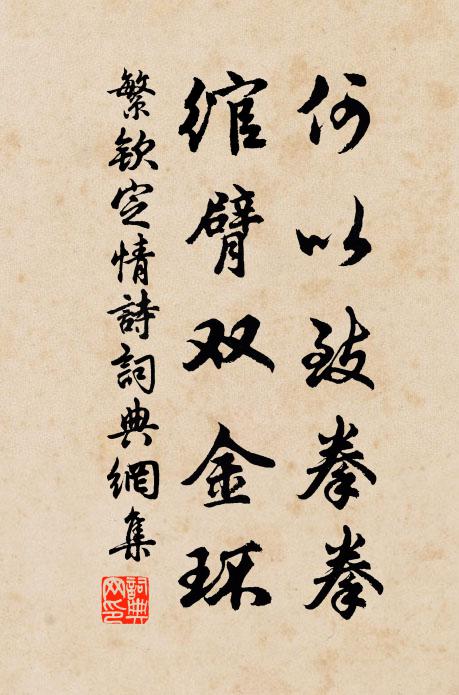 何以致拳拳
绾臂双金环
繁欽定情詩詞典網集
詞典网印